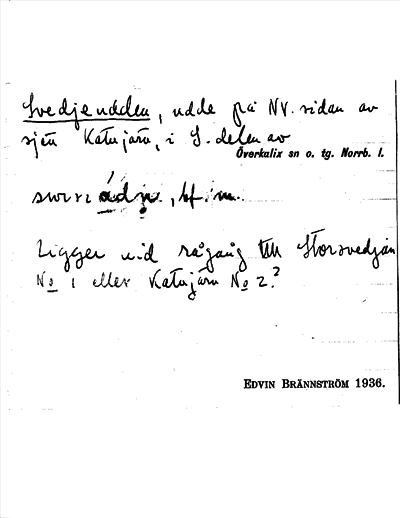 Svedjeudden, udde på NV. sidan av
sjön Katujärv, i S. delen av
Överkalix sn o. tg. Norrb. l.
bf. m.
Ligger vid rågång till Storsvedjan
No 1 eller Katujärv No 2.?
EDVIN BRÄNNSTRÖM 1936.